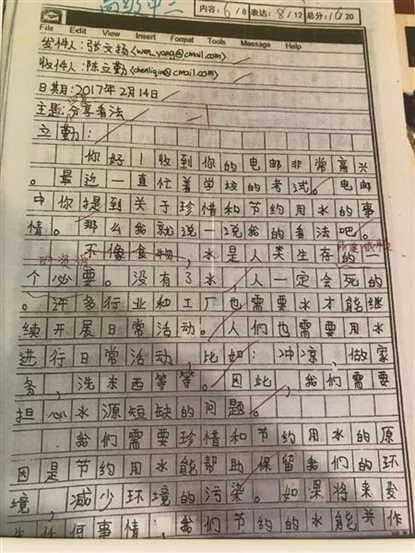 高级中二
内容: 6/8 表达: 8/12 总分: 16/20
File Edit View Insert Format Tools Message Help
发件人:张文扬<wen_yang@cmail.com>
收件人:陈立勤<chenliqin@cmail.com>
日期:2017年2月14日
主题:分享看法
立勤:
你好!收到你的电邮非常高兴
。最近一直忙着学校的考试。电邮
中你提到关于珍惜和节约用水的事
情。那么我就说一说我的看法吧。
不像食物,水是人类生存的一
个必要。没有了水,人一定会死的
。许多行业种工厂也需要水才能继
续开展日常活动。人们也需要用水
进行日常活动,比如:冲凉,做家
务,洗东西等等。因此,我们需要
担心水源短缺的问题。
我们需要珍惜和节约用水的原
因是节约用水能帮助保留我们的环
境,减少环境的污染。如果将来发
生任何事情,我们节约的水能并作